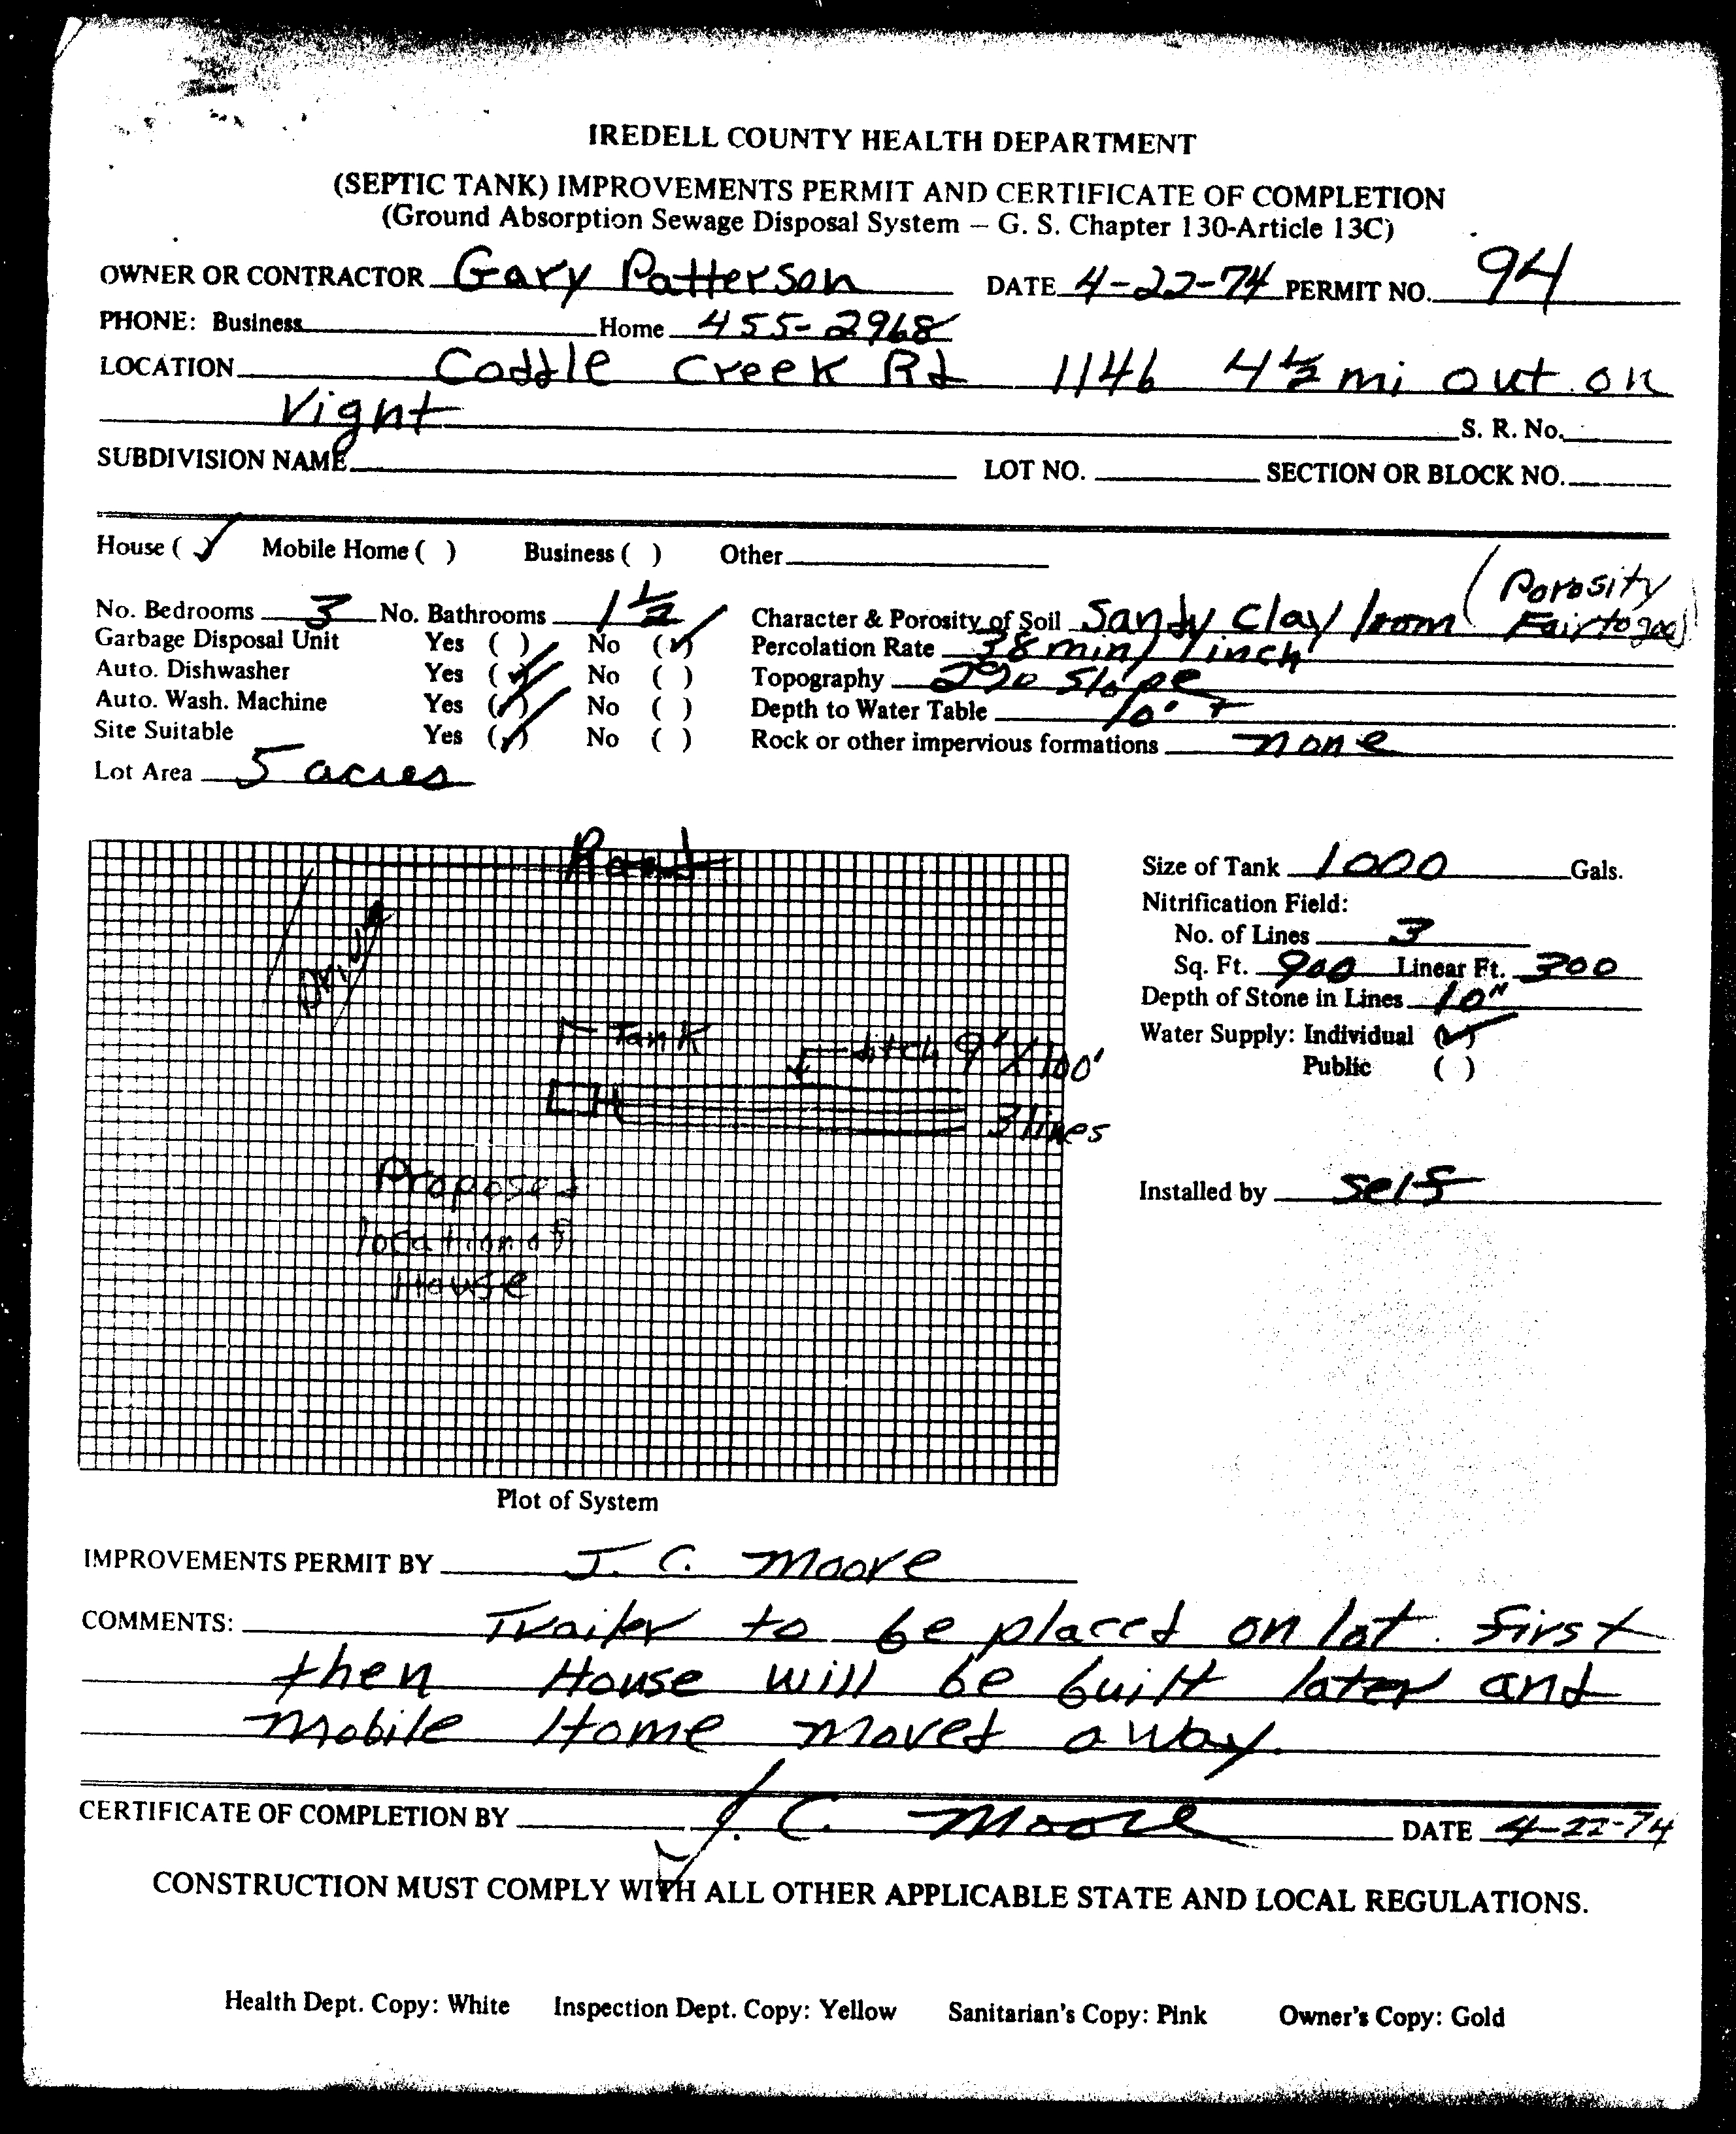 IREDELL COUNTY HEALTH DEPARTMENT
(SEPTIC TANK) IMPROVEMENTS PERMIT AND CERTIFICATE OF COMPLETION
(Ground Absorption Sewage Disposal System – G. S. Chapter 130-Article 13C)
OWNER OR CONTRACTOR Gary Patterson DATE 4-22-74 PERMIT NO. 94
PHONE: Business Home 455-2968
LOCATION Coddle Creek Rd 1146 4½ mi out on
right S. R. No.
SUBDIVISION NAME LOT NO. SECTION OR BLOCK NO.
House (✓) Mobile Home ( ) Business ( ) Other
No. Bedrooms 3 No. Bathrooms 1½
Garbage Disposal Unit Yes ( ) No (✓)
Auto. Dishwasher Yes (✓) No ( )
Auto. Wash. Machine Yes (✓) No ( )
Site Suitable Yes (✓) No ( )
Lot Area 5 acres
Character & Porosity of Soil Sandy Clay loom (Porosity
Fair to good)
Percolation Rate 38 min / 1 inch
Topography 2% Slope
Depth to Water Table 10' +
Rock or other impervious formations none
Road
Drive
Tank
ditch 9' X 100'
3 lines
Proposed
location of
House
Plot of System
Size of Tank 1000 Gals.
Nitrification Field:
No. of Lines 3
Sq. Ft. 900 Linear Ft. 300
Depth of Stone in Lines 10"
Water Supply: Individual (✓)
Public ( )
Installed by self
IMPROVEMENTS PERMIT BY J. C. Moore
COMMENTS: Trailer to be placed on lot first
then House will be built later and
Mobile Home moved away.
CERTIFICATE OF COMPLETION BY J. C. Moore DATE 4-22-74
CONSTRUCTION MUST COMPLY WITH ALL OTHER APPLICABLE STATE AND LOCAL REGULATIONS.
Health Dept. Copy: White Inspection Dept. Copy: Yellow Sanitarian's Copy: Pink Owner's Copy: Gold